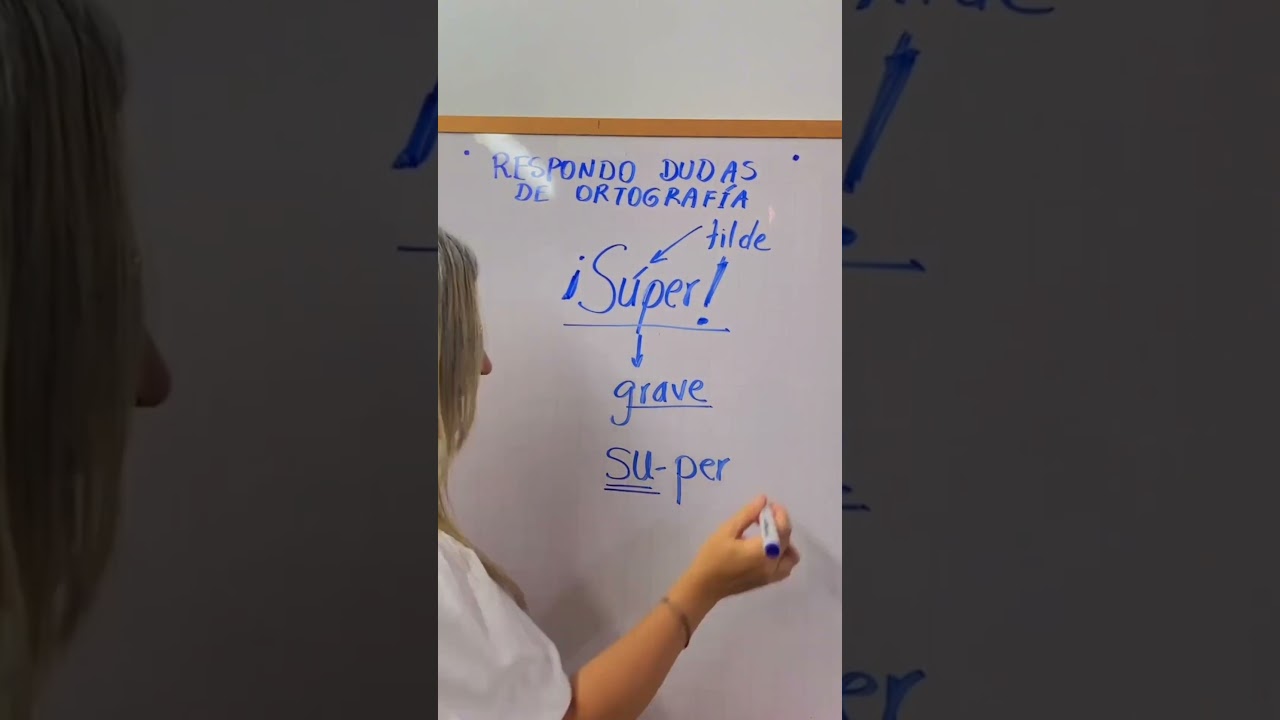 RESPONDO DUDAS
DE ORTOGRAFÍA
tilde
¡Súper!
grave
su-per